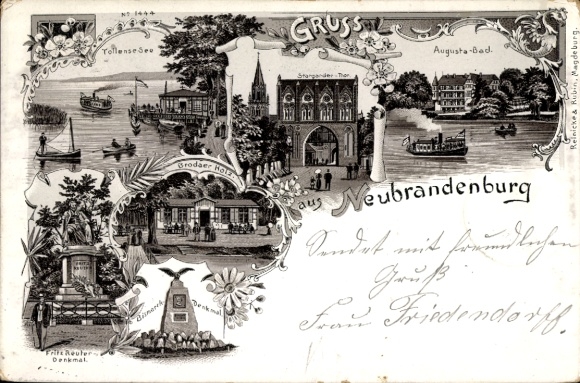 No. 1444
GRUSS
Tollense See
Stargarder-Thor
Augusta-Bad.
Reinicke & Rubin, Magdeburg.
Brodaer Holz
aus Neubrandenburg
FRITZ REUTER
Bismarck-Denkmal
Fritz Reuter-
Denkmal.
Sendet mit freundlichen
Gruß
Frau Friedendorff.